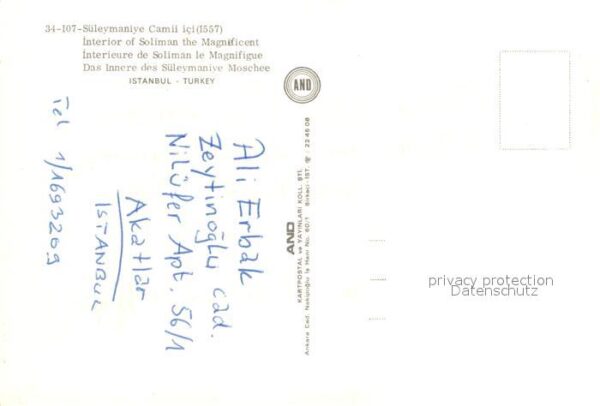 34-107-Süleymaniye Camii içi (1557)
Interior of Soliman the Magnificent
Interieure de Soliman le Magnifigue
Das Innere des Süleymaniye Moschee
ISTANBUL - TURKEY
AND
Ali Erbak
Zeytinoğlu cad.
Nilüfer Apt. 56/1
Akatlar
ISTANBUL
Tel 1/1693209
AND
KARTPOSTAL ve YAYINLARI KOLL. ŞTİ.
Ankara Cad. Nakipoğlu İş Hanı No. 60/1 Sirkeci-IST. ☎ : 22 46 08
privacy protection
Datenschutz